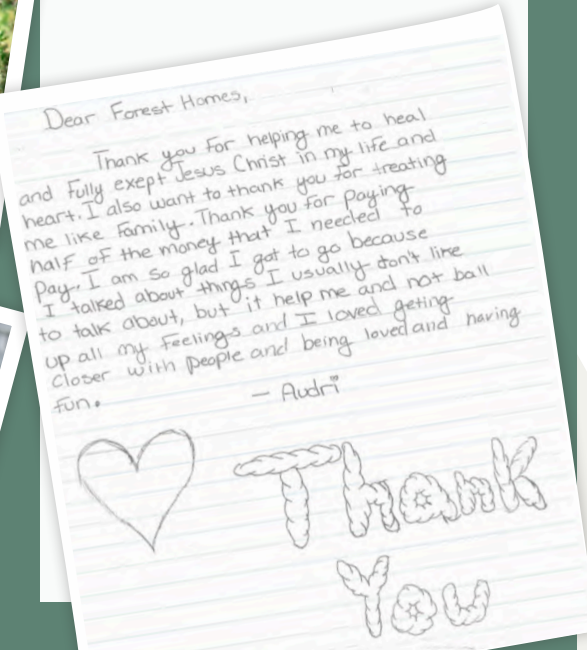 Dear Forest Homes,
Thank you for helping me to heal
and fully exept Jesus Christ in my life and
heart. I also want to thank you for treating
me like family. Thank you for paying
half of the money that I needed to
pay. I am so glad I got to go because
I talked about things I usually don't like
to talk about, but it help me and not ball
up all my feelings and I loved geting
closer with people and being loved and having
fun.
— Audri
Thank
You